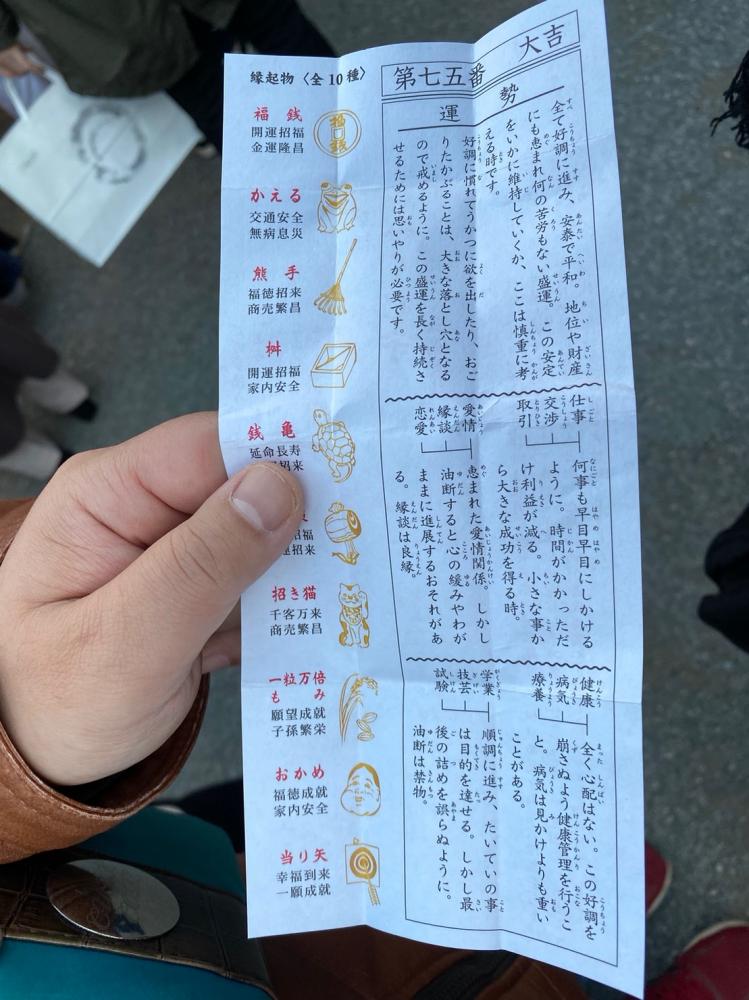 大吉
第七五番
運勢
全て好調に進み、安泰で平和。地位や財産
にも恵まれ何の苦労もない盛運。この安定
をいかに維持していくか、ここは慎重に考
える時です。
好調に慣れてうかつに欲を出したり、おご
りたかぶることは、大きな落とし穴となる
ので戒めるように。この盛運を長く持続さ
せるためには思いやりが必要です。
仕事
交渉
取引
何事も早目早目にしかける
ように。時間がかかっただ
け利益が減る。小さな事か
ら大きな成功を得る時。
愛情
縁談
恋愛
恵まれた愛情関係。しかし
油断すると心の緩みやわが
ままに進展するおそれがあ
る。縁談は良縁。
健康
病気
療養
全く心配はない。この好調を
崩さぬよう健康管理を行うこ
と。病気は見かけよりも重い
ことがある。
学業
技芸
試験
順調に進み、たいていの事
は目的を達せる。しかし最
後の詰めを誤らぬように。
油断は禁物。
縁起物〈全10種〉
福銭
開運招福
金運隆昌
かえる
交通安全
無病息災
熊手
福徳招来
商売繁昌
桝
開運招福
家内安全
銭亀
延命長寿
招来
招福
招来
招き猫
千客万来
商売繁昌
一粒万倍
もみ
願望成就
子孫繁栄
おかめ
福徳成就
家内安全
当り矢
幸福到来
一願成就